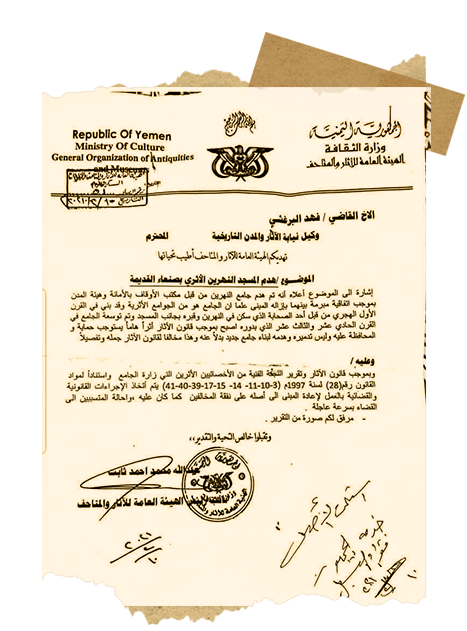 Republic Of Yemen
Ministry Of Culture
General Organization of Antiquities
and Museums
الجمهورية اليمنية
وزارة الثقافة
الهيئة العامة للآثار والمتاحف
الاخ القاضي / فهد البرغشي
وكيل نيابة الآثار والمدن التاريخية المحترم
تهديكم الهيئة العامة للآثار والمتاحف أطيب تحياتها
الموضوع / هدم المسجد النهرين الأثري بصنعاء القديمة
إشارة الى الموضوع أعلاه أنه تم هدم جامع النهرين من قبل مكتب الأوقاف بالأمانة وهيئة المدن
بموجب اتفاقية مبرمة بينهما بإزاله المبنى علما ان الجامع هو من الجوامع الأثرية وقد بني في القرن
الأول الهجري من قبل أحد الصحابة الذي سكن في النهرين وقبره بجانب المسجد وتم توسعة الجامع في
القرن الحادي عشر والثالث عشر الذي بدوره اصبح بموجب قانون الآثار أثراً هاماً يستوجب حماية و
المحافظة عليه وليس تدميره وهدمه لبناء جامع جديد بدلاً عنه وهذا مخالفا لقانون الآثار جمله وتفصيلاً
وعليه /
وبموجب قانون الآثار وتقرير اللجنة الفنية من الأخصائيين الأثرين التي زارة الجامع واستناداً لمواد
القانون رقم (28) لسنة 1997م (3-10-11 -14 -15-17-39-40-41) يتم أتخاذ الإجراءات القانونية
والقضائية بالعمل لإعادة المبنى الى أصله على نفقة المخالفين كما كان عليه واحالة المتسببين الى
القضاء بسرعة عاجلة .
- مرفق لكم صورة من التقرير .
وتقبلوا خالص التحية والتقدير،،
عبدالله محمد احمد ثابت
الهيئة العامة للآثار والمتاحف